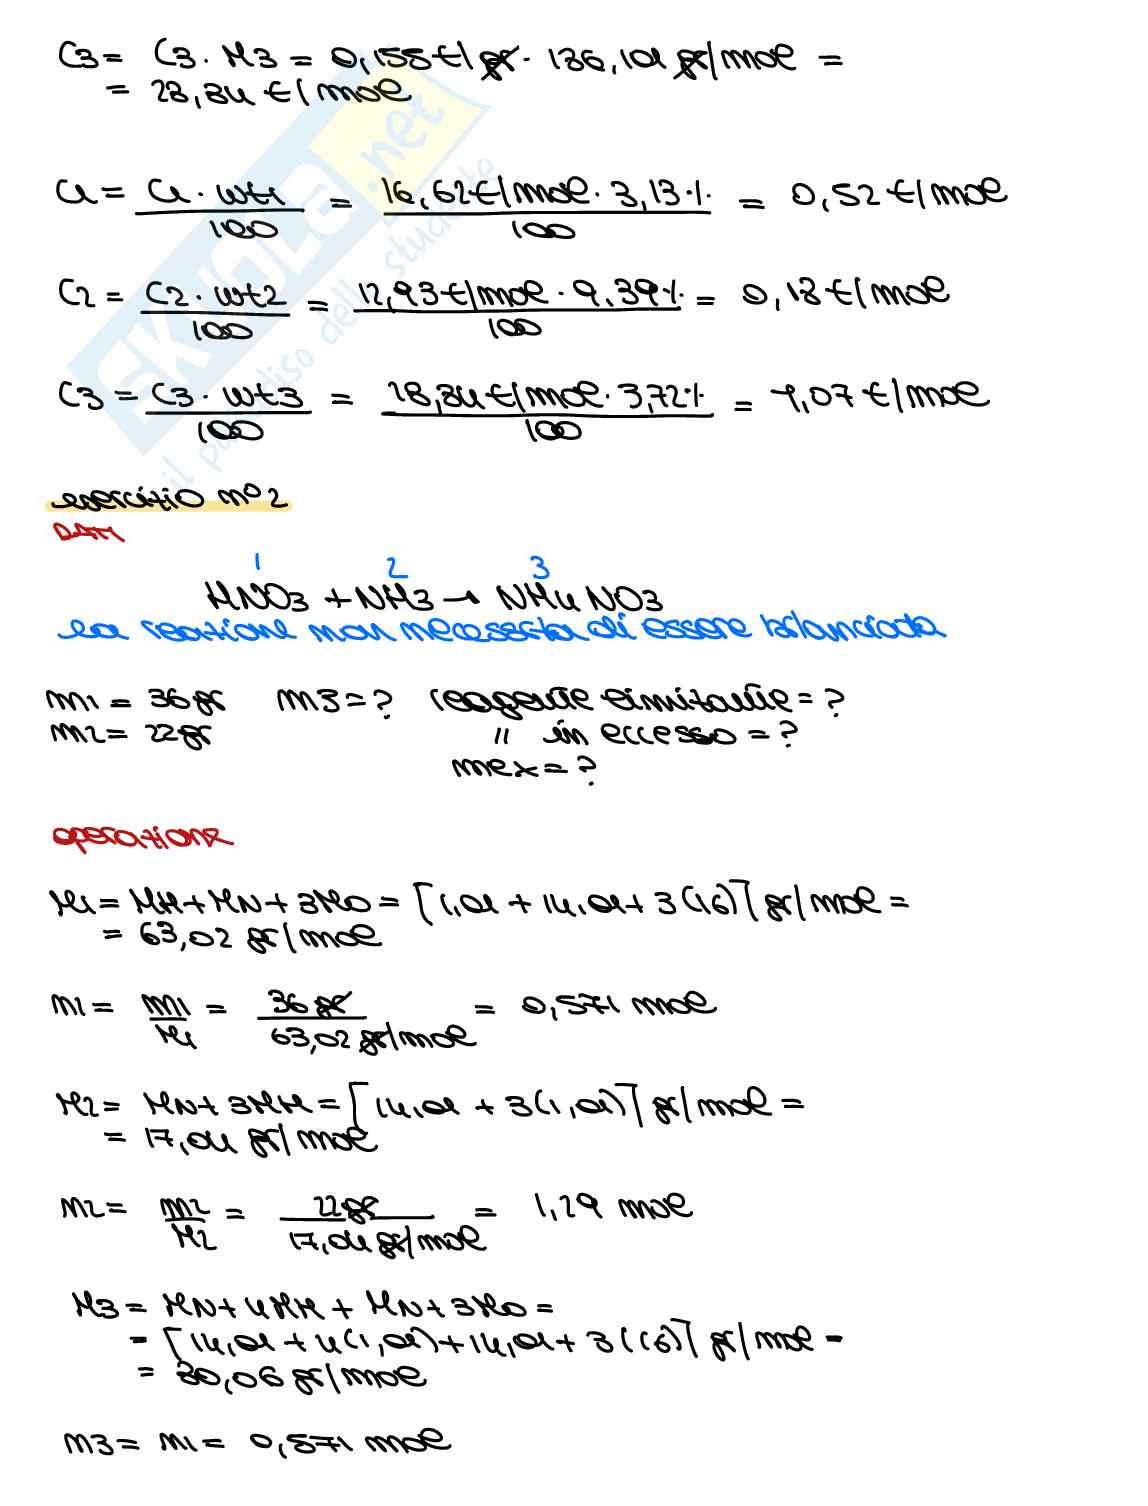 C3 = C3 · M3 = 0,155 €/gr · 186,101 gr/mole =
= 28,84 €/mole
C1 = C1 · wt1 / 100 = 16,62 €/mole · 3,13 % / 100 = 0,52 €/mole
C2 = C2 · wt2 / 100 = 12,93 €/mole · 9,39 % / 100 = 0,18 €/mole
C3 = C3 · wt3 / 100 = 28,84 €/mole · 3,72 % / 100 = 1,07 €/mole
esercizio n° 2
DATI
1 2 3
HNO3 + NH3 → NH4NO3
la reazione non necessita di essere bilanciata
m1 = 36 gr m3 = ? reagente limitante = ?
m2 = 22 gr " in eccesso = ?
mex = ?
operazione
M1 = MH + MN + 3MO = [1,01 + 14,01 + 3(16)] gr/mole =
= 63,02 gr/mole
n1 = m1 / M1 = 36 gr / 63,02 gr/mole = 0,571 mole
M2 = MN + 3MH = [14,01 + 3(1,01)] gr/mole =
= 17,04 gr/mole
n2 = m2 / M2 = 22 gr / 17,04 gr/mole = 1,29 mole
M3 = MN + 4MH + MN + 3MO =
= [14,01 + 4(1,01) + 14,01 + 3(16)] gr/mole =
= 80,06 gr/mole
n3 = n1 = 0,571 mole
SKUOLA.net